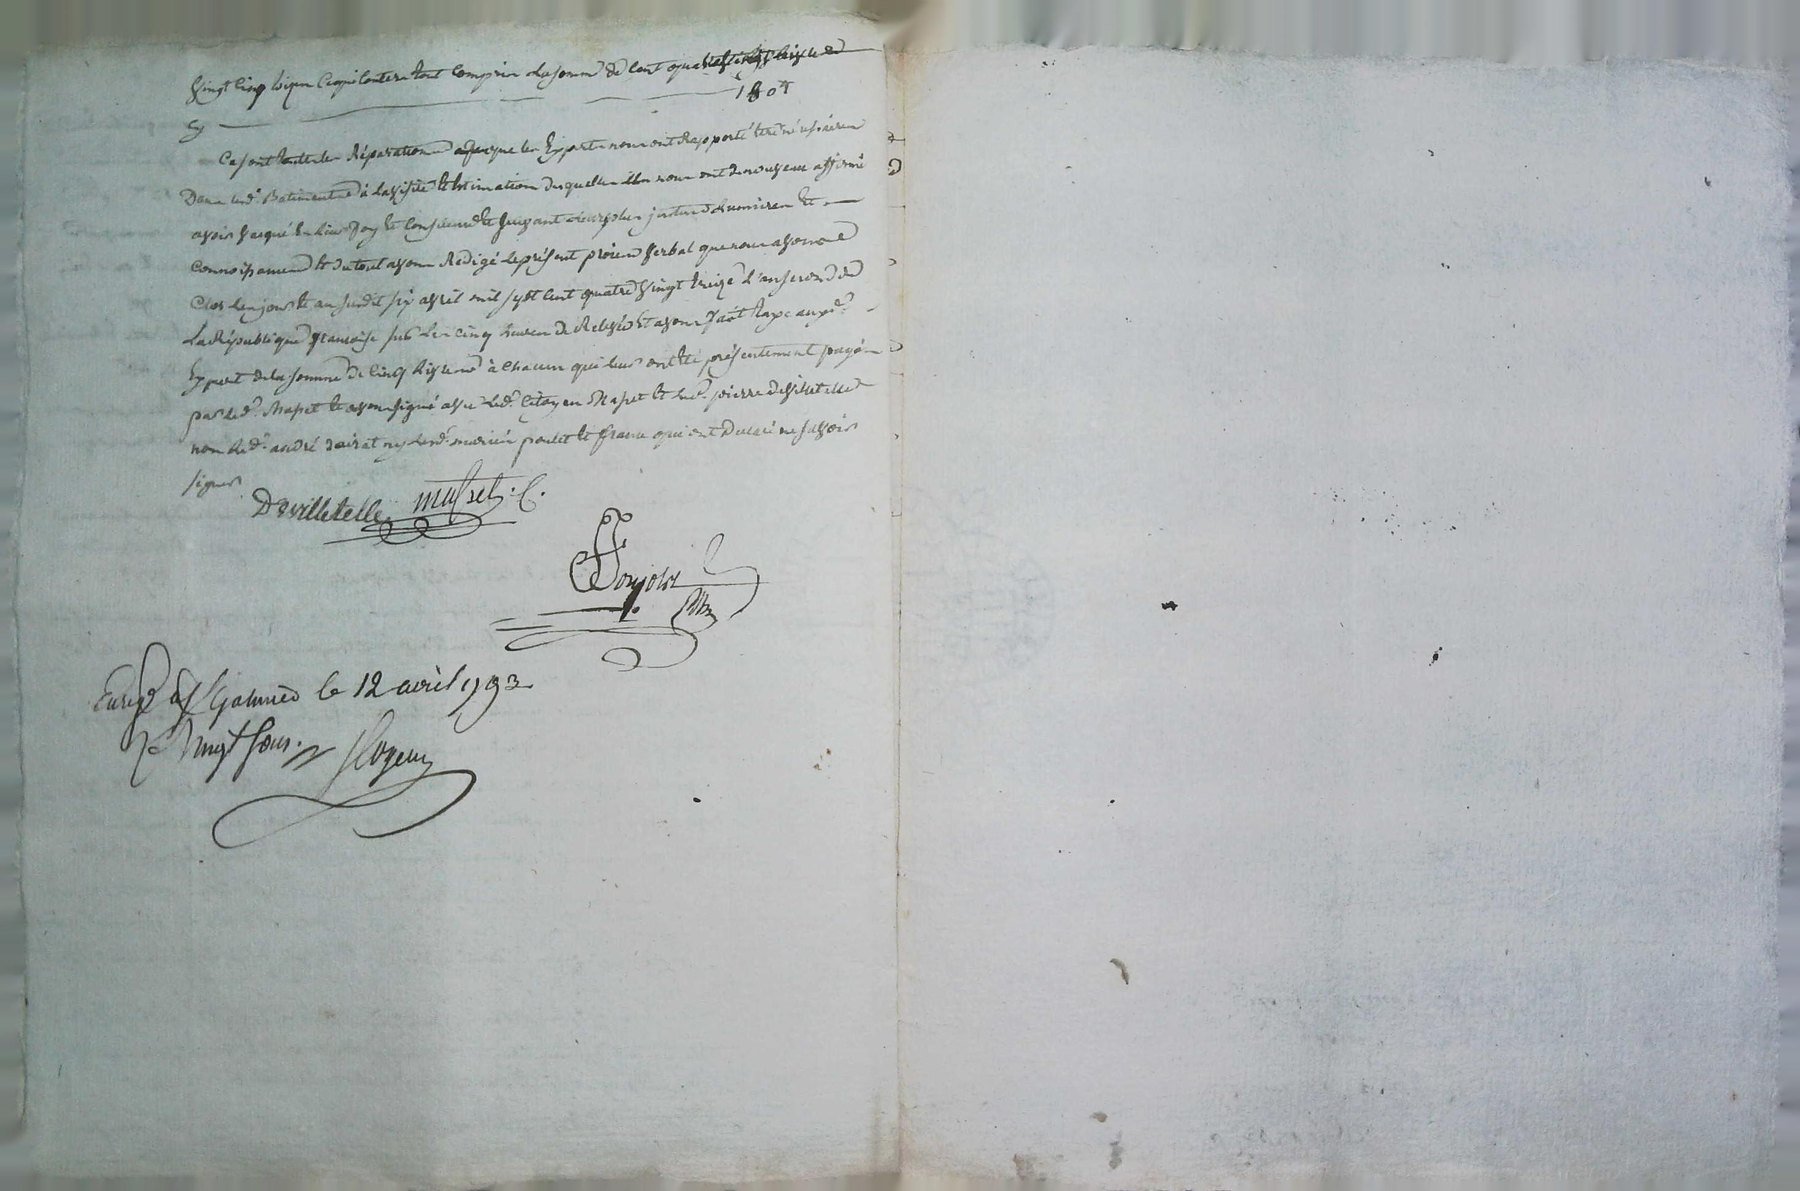 Vingt cinq Ce qui Coutera tout Compris La somme de Cent quatre vingt Livres
Cy 180#
Ce sont toutes les Réparations a que les Experts nous ont Rapporté être nécessaires
Dans lesd. Batiments à la Visite et Estimation desquelles ils nous ont de nouveau affirmé
avoir Vaqué En leur Foy et Conscience et suivant Leurs plus justes Lumieres Et
Connoissances et du tout avons Rédigé le présent procès Verbal que nous avons
Clos les jour et an susdit six avril mil sept Cent quatre Vingt treize L'an second de
La République française sur les cinq heures de Relevée Et avons Fait taxe auxd.
Expert de la somme de Cinq Livres à Chacun qui leur ont été présentement payés
par led. Mapet et avons signé avec led. Citoyen Mapet et led. pierre devilletelle
non led. andré ny lesd. poulet et france qui ont Déclaré ne savoir
signer
Devilletelle
Enregé a St Gervais le 12 avril 1793
R. Vingt sous.